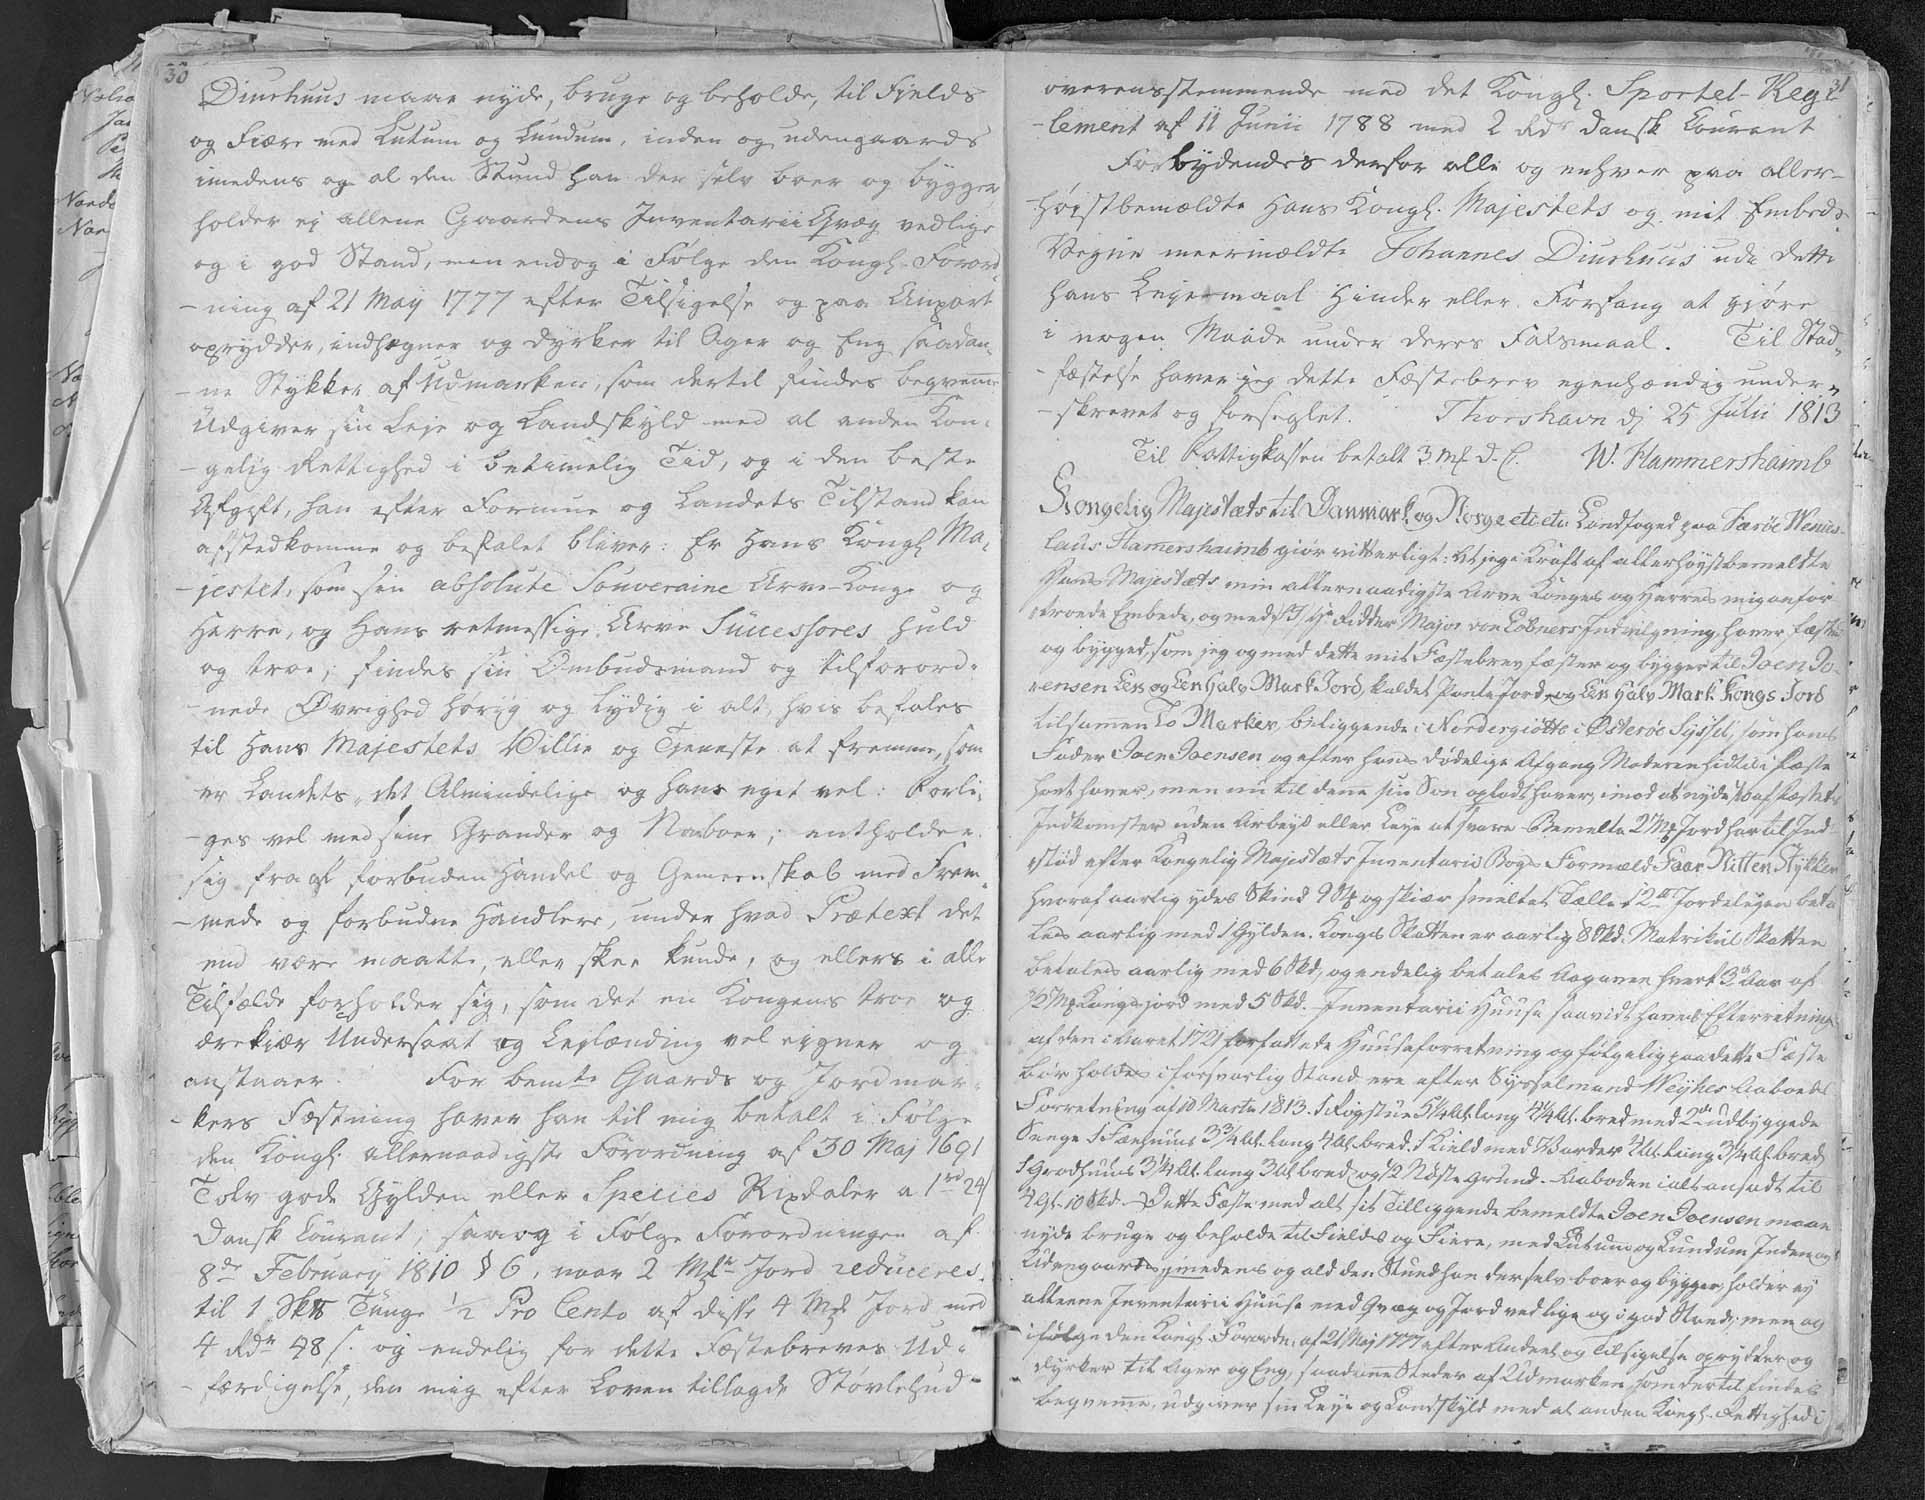 30
Diurhuus maae nyde, bruge og beholde, til Fields
og Fiære med Lutum og Lundum, inden og udengaards
imedens og al den Stund han der selv boer og bygger
holder ej allene Gaardens Inventarii Qvæg vedlige
og i god Stand, men endog i Følge den Kongl. Forord-
-ning af 21 Maÿ 1777 efter Tilsigelse og paa Anpart
oprydder, indhegner og dyrker til Ager og Eng saadan-
-ne Stykker af Udmarken, som dertil findes beqvemme
Udgiver sin Leje og Landskyld med al anden Kon-
-gelig Rettighed i betimelig Tid, og i den beste
Afgift, han efter Formue og Landets Tilstand kan
afstedkomme og befalet bliver: Er Hans Kongl. Ma-
-jestet, som sin absolute Souveraine Arve-Konge og
Herre, og Hans retmessige Arve Successores huld
og troe; findes sin Ombudsmand og tilforord-
-nede Øvrighed hørig og lydig i alt, hvis befales
til Hans Majestets Villie og Tjeneste at fremme, som
er Landets, det Almindelige og hans eget vel: Forli-
-ges vel med sine Grander og Naboer; entholder
sig fra al forbuden Handel og Gemeenskab med Frem-
-mede og forbudne Handlere, under hvad Prætext det
end være maatte, eller skee kunde, og ellers i alle
Tilfælde forholder sig, som det en Kongens troe og
ærekiær Undersaat og Leylænding vel eigner og
anstaaer. For bemte Gaards og Jordmar-
-kers Fæstning haver han til mig betalt i Følge
den Kongl. allernaadigste Forordning af 30 Maj 1691
Tolv gode Gylden eller Species Rixdaler a 1 rd 24 s
Dansk Courant; saa og i Følge Forordningen af
8de February 1810 § 6, naar 2 Mk Jord reduceres
til 1 Skp Tunge 1/2 Pro Cento af disse 4 Mk Jord med
4 Rdr 48 s. og endelig for dette Fæstebreves Ud-
-færdigelse, den mig efter Loven tillagde Støvlehud
31
overensstemmende med det Kongl. Sportel-Regl-
-lement af 11 Junii 1788 med 2 Rdr dansk Courant
Forbydendes derfor alle og enhver paa aller-
høistbemældte Hans Kongl. Majestets og mit Embeds
Vegne meermældte Johannes Diurhuus udi dette
hans Leyemaal Hinder eller Forfang at giøre
i nogen Maade under deres Falsmaal. Til Stad-
-fæstelse haver jeg dette Fæstebrev egenhændig under-
-skrevet og forseglet. Thorshavn dj 25 Julii 1813
Til Fattigkassen betalt 3 mk d. C. W. Hammershaimb
Kongelig Majestæts til Danmark og Norge etc etc Landfoged paa Færöe Wences-
laus Hamershaimb giør vitterligt: At jeg i Kraft af allerhøystbemeldte
Hans Majestæts min allernaadigste Arve Konges og Herres mig anfor-
troede Embede, og med Ridder Major von Löbners Indvilgning haver fæstet
og bygged, som jeg og med dette mit Fæstebrev fæster og bygger til Joen Jo-
ensen Een og Een halv Mark Jord, kaldet Pante Jord, og Een halv Mark Kongs Jord
tilsamen To Marker, beliggende i Nordergiötte i Østeröe Syssel, som hans
Fader Joen Joensen og efter hans dødelige Afgang Moderen hidtil i Fæste
havt haver, men nu til denne sin Søn opladt haver, imod at nyde af Fæstets
Indkomster uden Arbeyd eller Leye at svare. Bemelte 2 Mk Jord har til Ind-
stød efter Kongelig Majestæts Inventarii Bogs Formæld Faar Nitten Stykker
hvoraf aarlig ydes Skind 9 Stk og skiær smeltet Tælle Jordeleyen beta-
les aarlig med 1 Gylden. Kongs Skatten er aarlig 8 Skd. Matrikul Skatten
betales aarlig med 6 Skd, og endelig betales hvert 3de Aar af
1/2 Mk Kongsjord med 5 Skd. Inventarii Huuse saavidt haves Efterretning
af den i Aaret 1721 forfattede Huuseforretning og følgelig paa dette Fæste
bør holdes i forsvarlig Stand ere efter Sysselmand Weyhes Aaboeds
Forretning af 10 Martii 1813. 1 Røgstue 5 1/4 Al. lang 4 1/4 Al. bred med 2de udbyggede
Senge 1 Fæehuus 3 3/4 Al. lang 4 Al. bred. 1 Kield med Vander 4 Al. lang 3 1/4 Al. bred
1 Grødhuus 3 1/4 Al. lang 3 Al. bred og 1/2 Nøste Grund. Aaboden i alt ansadt til
4 Gl. 10 Skd. Dette Fæste med alt sit Tilliggende bemeldte Joen Joensen maae
nyde bruge og beholde til Fields og Fiere, med Lutum og Lundum Inden og
Udengaards imedens og ald den Stund han der selv boer og bygger, holder ej
alleene Inventarii Huuse med Qvæg og Jord vedlige og i god Stand; men og
ifølge den Kongl. Forordn. af 21 Maj 1777 efter Andeel og Tilsigelse oprydder og
dyrker til Ager og Eng, saadanne Steder af Udmarken, som dertil findes
beqvemme, udgiver sin Leye og Landskyld med al anden Kongl. Rettighed i